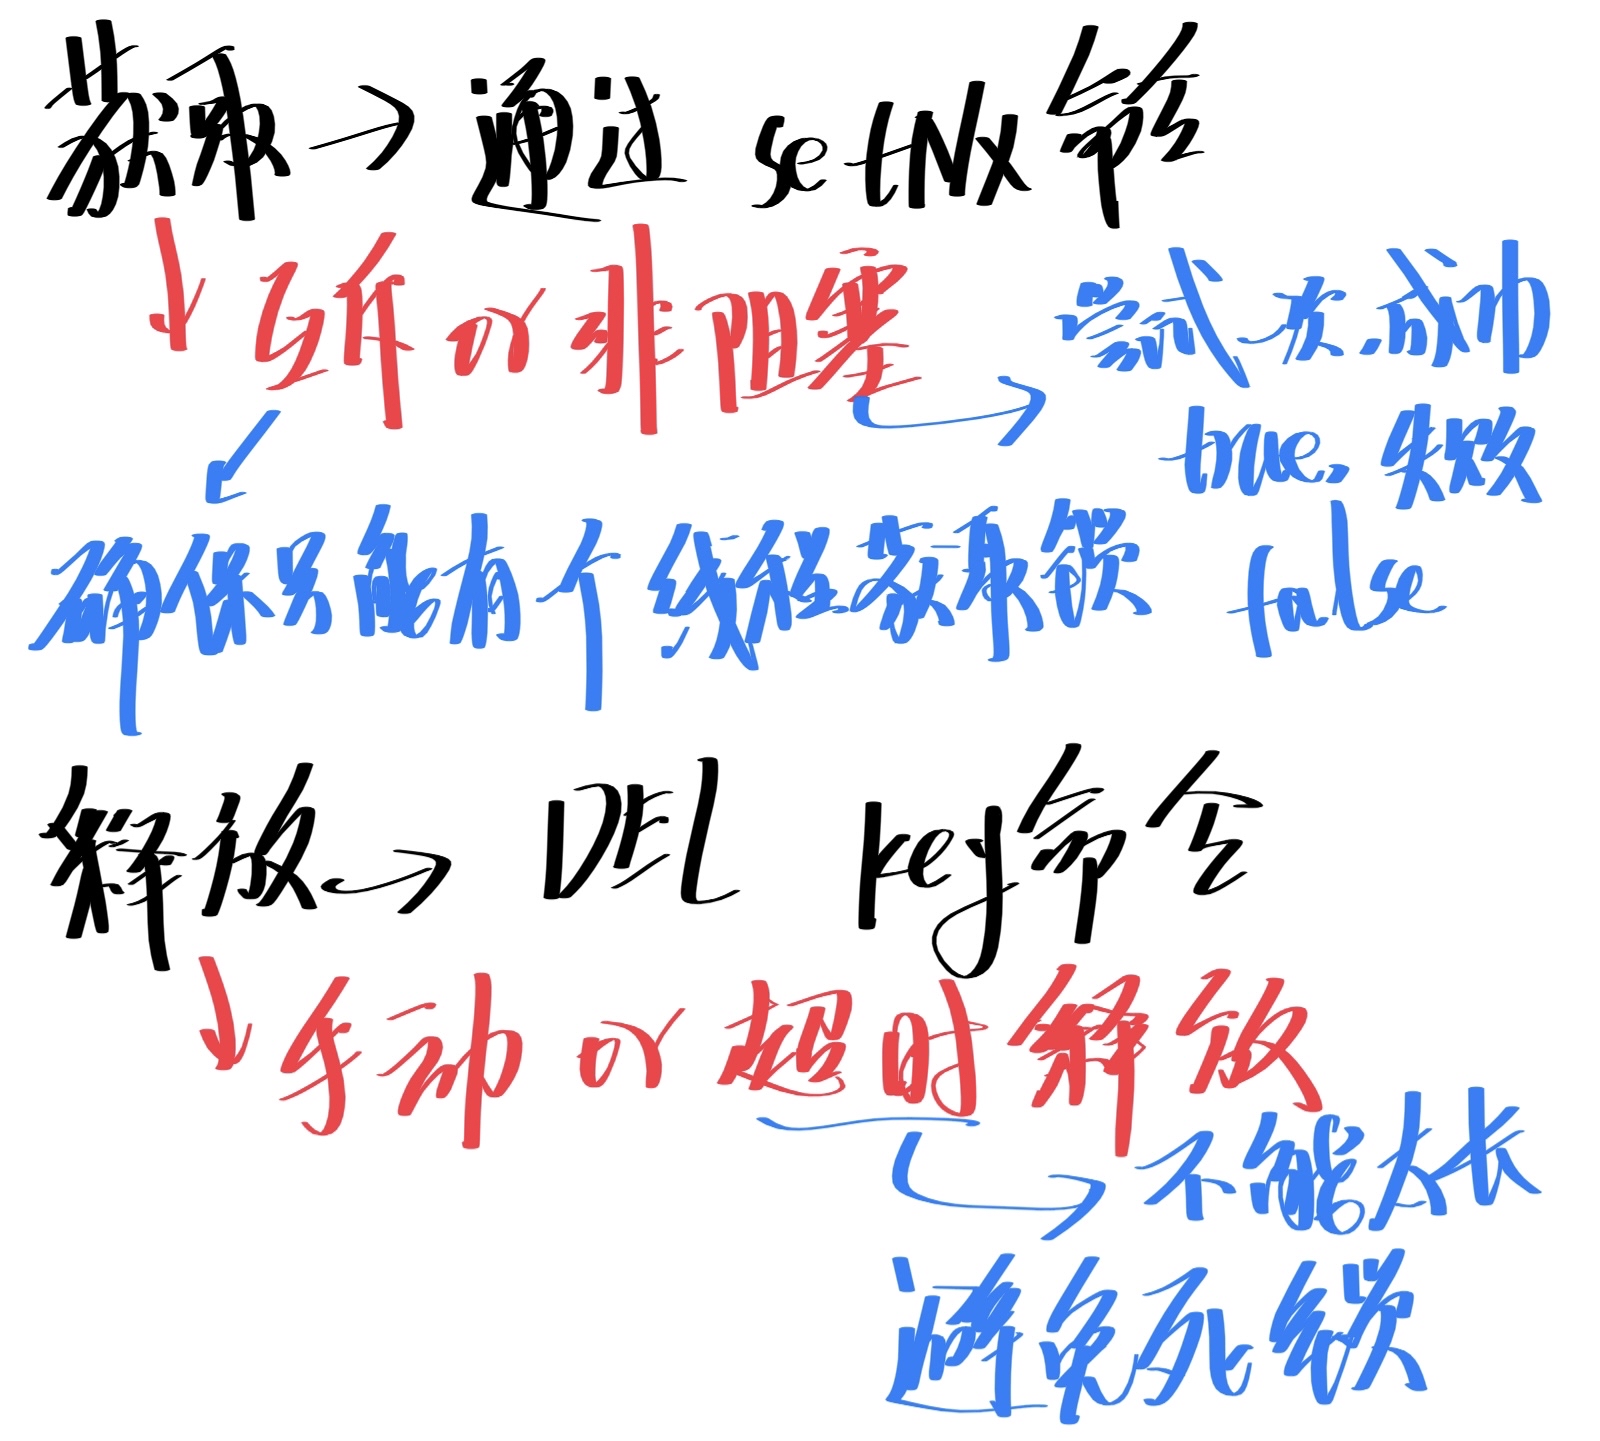 获取→通过 setNX命令
↓互斥 or 非阻塞
尝试一次,成功
true,失败
false
确保只能有个线程获取锁
释放→ DEL key命令
↓手动 or 超时释放
不能太长
避免死锁